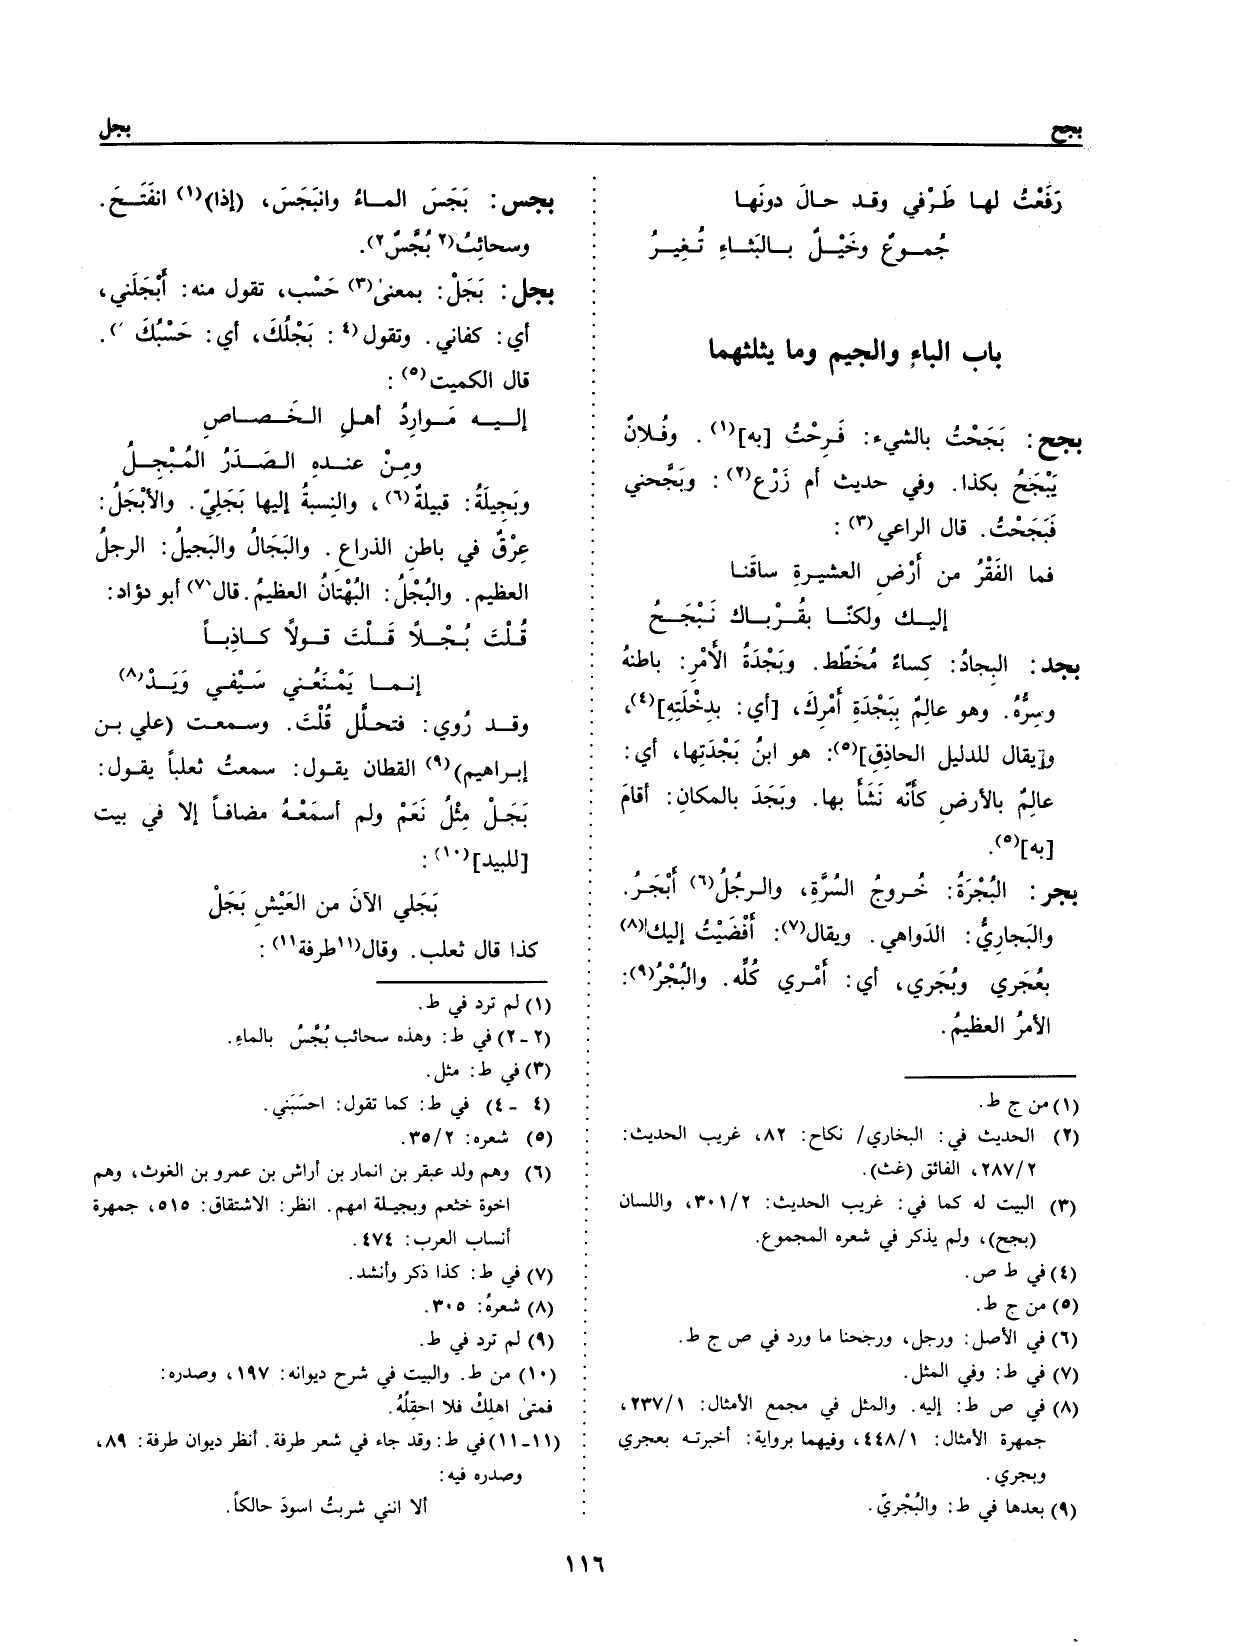 بجح
بجل
رَفَعْتُ لها طَرْفي وقد حالَ دونَها
جُموعٌ وخَيْلٌ بالبَثاءِ تُغيرُ
باب الباءِ والجيم وما يثلثهما
بجح: بَجَحْتُ بالشيء: فَرِحْتُ [به](١). وفُلانٌ
يَبْجَحُ بكذا. وفي حديث أم زَرْع(٢): وبَجَّحني
فَبَجَحْتُ. قال الراعي(٣):
فما الفَقْرُ من أَرْضِ العشيرةِ ساقَنا
إليك ولكنّا بقُرْباك نَبْجَحُ
بجد: البِجادُ: كِساءٌ مُخَطَّط. وبَجْدَةُ الأمْرِ: باطنهُ
وسِرُّهُ. وهو عالِمٌ بِبَجْدَةِ أَمْرِكَ، [أي: بدِخْلَتِهِ](٤)،
و[يقال للدليل الحاذِقِ](٥): هو ابنُ بَجْدَتِها، أي:
عالِمٌ بالأرضِ كأنّه نَشَأَ بها. وبَجَدَ بالمكانِ: أقامَ
[به](٥).
بجر: البُجْرَةُ: خُروجُ السُّرَّةِ، والرجُلُ(٦) أَبْجَرُ.
والبَجاريُّ: الدَواهي. ويقال(٧): أَفْضَيْتُ إليك(٨)
بعُجَري وبُجَري، أي: أَمْري كُلَّه. والبُجْرُ(٩):
الأمرُ العظيمُ.
(١) من ج ط.
(٢) الحديث في: البخاري/ نكاح: ٨٢، غريب الحديث:
٢/ ٢٨٧، الفائق (غث).
(٣) البيت له كما في: غريب الحديث: ٢/ ٣٠١، واللسان
(بجح)، ولم يذكر في شعره المجموع.
(٤) في ط ص.
(٥) من ج ط.
(٦) في الأصل: ورجل، ورجحنا ما ورد في ص ج ط.
(٧) في ط: وفي المثل.
(٨) في ص ط: إليه. والمثل في مجمع الأمثال: ١/ ٢٣٧،
جمهرة الأمثال: ١/ ٤٤٨، وفيهما برواية: أخبرته بعجري
وبجري.
(٩) بعدها في ط: والبُجْريّ.
بجس: بَجَسَ الماءُ وانبَجَسَ، (إذا)(١) انفَتَحَ.
وسحائِبُ(٢ بُجَّسٌ ٢).
بجل: بَجَلْ: بمعنىٰ(٣) حَسْب، تقول منه: أَبْجَلَني،
أي: كفاني. وتقول(٤: بَجْلُكَ، أي: حَسْبُكَ ).
قال الكميت(٥):
إليه مَوارِدُ أهلِ الخَصاصِ
ومِنْ عندِهِ الصَدَرُ المُبْجِلُ
وبَجِيلَةُ: قبيلةٌ(٦)، والنِسبةُ إليها بَجَلِيّ. والأبْجَلُ:
عِرْقٌ في باطنِ الذراعِ. والبَجالُ والبَجيلُ: الرجلُ
العظيم. والبُجْلُ: البُهْتانُ العظيمُ. قال(٧) أبو دؤاد:
قُلْتَ بُجْلاً قَلْتَ قولاً كاذِباً
إنما يَمْنَعُني سَيْفي وَيَدْ(٨)
وقد رُوي: فتحلَّل قُلْتَ. وسمعت (علي بن
إبراهيم)(٩) القطان يقول: سمعتُ ثعلباً يقول:
بَجَلْ مِثْلُ نَعَمْ ولم أسمَعْهُ مضافاً إلا في بيت
[للبيد](١٠):
بَجَلي الآنَ من العَيْشِ بَجَلْ
كذا قال ثعلب. وقال(١١ طرفة ١١):
(١) لم ترد في ط.
(٢-٢) في ط: وهذه سحائب بُجَّسُ بالماءِ.
(٣) في ط: مثل.
(٤ - ٤) في ط: كما تقول: احسَبَني.
(٥) شعره: ٢/ ٣٥.
(٦) وهم ولد عبقر بن انمار بن أراش بن عمرو بن الغوث، وهم
اخوة خثعم وبجيلة امهم. انظر: الاشتقاق: ٥١٥، جمهرة
أنساب العرب: ٤٧٤.
(٧) في ط: كذا ذكر وأنشد.
(٨) شعرهُ: ٣٠٥.
(٩) لم ترد في ط.
(١٠) من ط. والبيت في شرح ديوانه: ١٩٧، وصدره:
فمتىٰ اهلِكْ فلا احفِلُهُ.
(١١-١١) في ط: وقد جاء في شعر طرفة. أنظر ديوان طرفة: ٨٩،
وصدره فيه:
ألا انني شربتُ اسودَ حالكاً.
١١٦